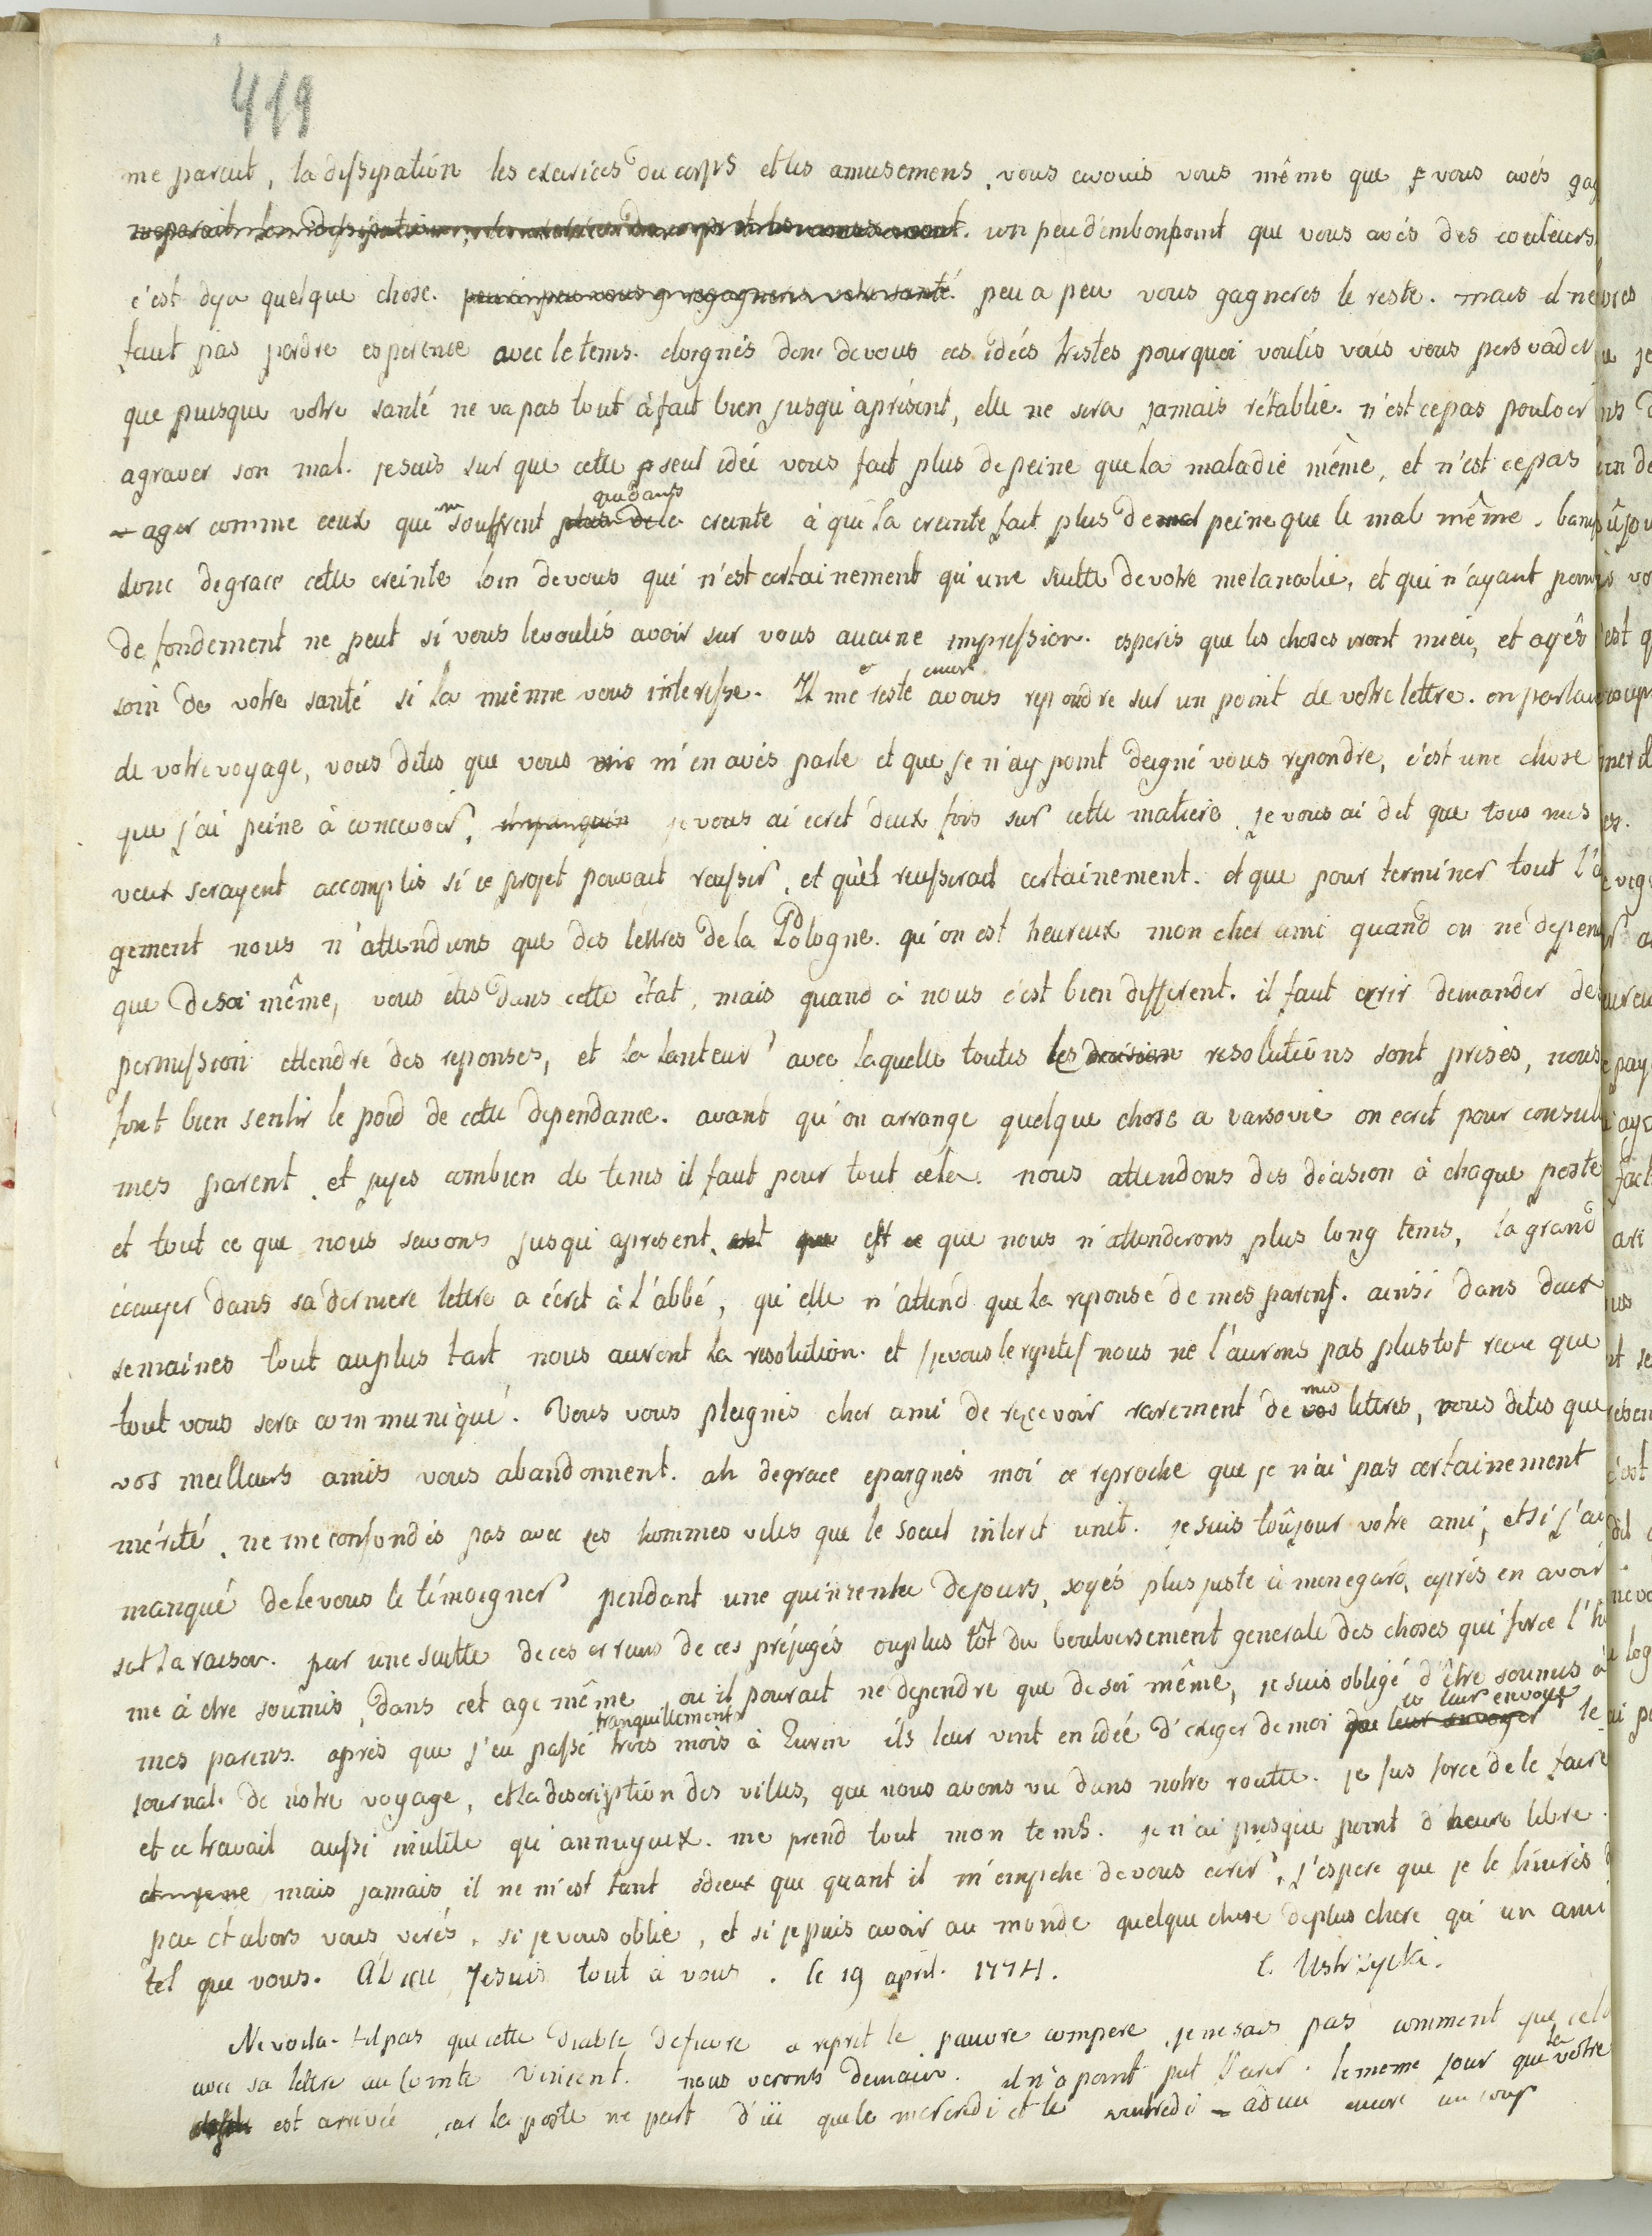 419
me parait, la dissipation les exerices du corps et les amusemens, vous avouis vous même que vous avés gag
un peu d'embonpoint que vous avés des couleurs
c'est dja quelque chose. peu a peu vous regagneris votre santé. peu a peu vous gagneres le reste. mais il ne
faut pas perdre esperence avec le tems. eloignés donc de vous ces idées tristes pourquoi voulis vous vous persvader
que puisque votre santé ne va pas tout à fait bien jusqu'aprésent, elle ne sera jamais rétablie. n'est ce pas vouloir
agraver son mal. je suis sur que cette seul idée vous fait plus de peine que la maladie même, et n'est ce pas
ager comme ceux qui souffrent plus de que dans la creinte à qui la creinte fait plus de mal peine que le mal même. banis
donc de grace cette creinte loin de vous qui n'est certainement qu'une suitte de votre melancolie, et qui n'ayant point
de fondement ne peut si vous le voulis avoir sur vous aucune impression. esperis que les choses iront mieu, et ayés
soin de votre santé si la mienne vous interesse. Il me reste encore a vous repondre sur un point de votre lettre. en parlant
de votre voyage, vous dites que vous m'en avés parle et que je n'ay point deigné vous repondre, c'est une chose
que j'ai peine à concevoir, je vous ai ecrit deux fois sur cette matiere. je vous ai dit que tous mes
veux serayent accomplis si ce projet pouvait reussir, et qu'il reussirait certainement. et que pour terminer tout l'a
gement nous n'attendions que des lettres de la Pologne. qu'on est heureux mon cher ami quand on ne depend
que de soi même, vous etes dans cette état, mais quand à nous c'est bien different. il faut ecrir demander des
permission attendre des reponses, et la lanteur avec laquelle toutes les decision resolutions sont prises, nous
font bien sentir le poid de cette dependance. avant qu'on arrange quelque chose a varsovie on ecrit pour consul
mes parent et jujes combien de tems il faut pour tout cela. nous attendons des décision à chaque poste
et tout ce que nous savons jusqu'apresent, est que est ce que nous n'attenderons plus long tems, la grand
écuyer dans sa derniere lettre a écrit à l'abbé, qu'elle n'attend que la reponse de mes parens. ainsi dans deux
semaines tout au plus tart nous auront la resolution. et /je vous le repete/ nous ne l'aurons pas plustot recue que
tout vous sera communiqué. Vous vous pleignés cher ami de reçevoir rarement de vos mes lettres, vous dites que
vos meilleurs amis vous abandonnent. ah de grace epargnés moi ce reproche que je n'ai pas certainement
mérité, ne me confondés pas avec ces hommes viles que le soeul interet unit. je suis toûjour votre ami, et si j'ai
manqué de le vous le témoigner pendant une quinsente de jours, soyés plus juste à mon egard, après en avoir
sçt la raison. par une suitte de ces erreurs de ces préjugés ou plus tôt du boulversement generale des choses qui force l'ho
me à etre soumis, dans cet age même, ou il pourait ne dependre que de soi même, je suis obligé d'être soumis à
mes parens. après que j'eu passé tranquillement trois mois à Turin ils leur vint en idée d'exiger de moi que leur envoyer le
journal de nôtre voyage, et la description des villes, que nous avons vu dans notre routte. je fus forcé de le faire
et ce travail aussi inutile qu'annuyeux. me prend tout mon tems. je n'ai presque point d'heure libre.
mais jamais il ne m'est tant odieux que quant il m'empeche de vous ecrir, j'espere que je le finirés d
peu et alors vous verés, si je vous oblie, et si je puis avoir au monde quelque chose de plus chere qu'un ami
tel que vous. Adieu Je suis tout à vous. le 19 april. 1774. C. Ustrzycki.
Ne voila-t-il pas que cette diable de fievre a reprit le pauvre compere, je ne sais pas comment que cela
avec sa lettre au Comte Vincent. nous verons demain. il n'a point put l'ecrir. le meme jour que la vôtre
est arrivée, car la poste ne part d'ici que le mercredi et le vendredi - adieu encore un coup